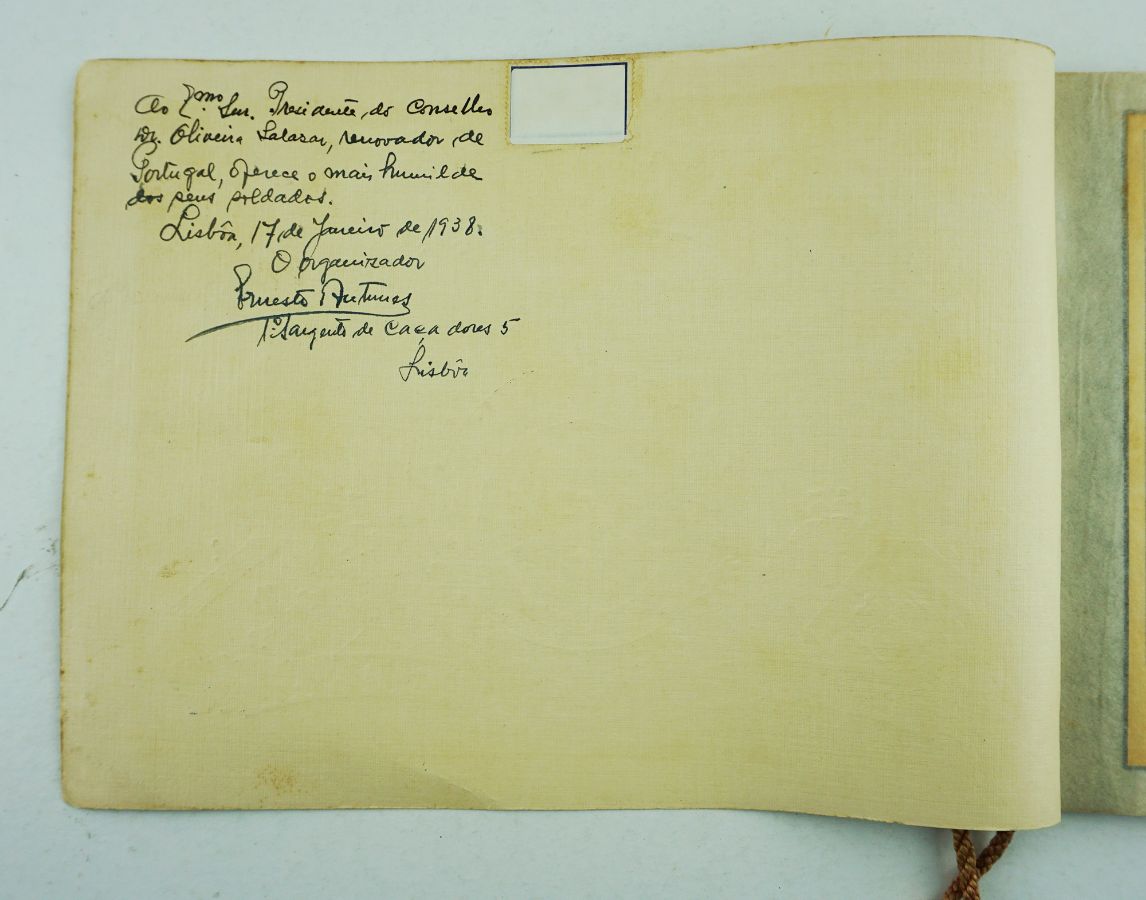 Ao Exmo. Snr. Presidente do Conselho
Dr. Oliveira Salazar, renovador de
Portugal, oferece o mais humilde
dos seus soldados.
Lisbôa, 17 de Janeiro de 1938.
O organizador
Ernesto Antunes
1º Sargento de Caçadores 5
Lisbôa